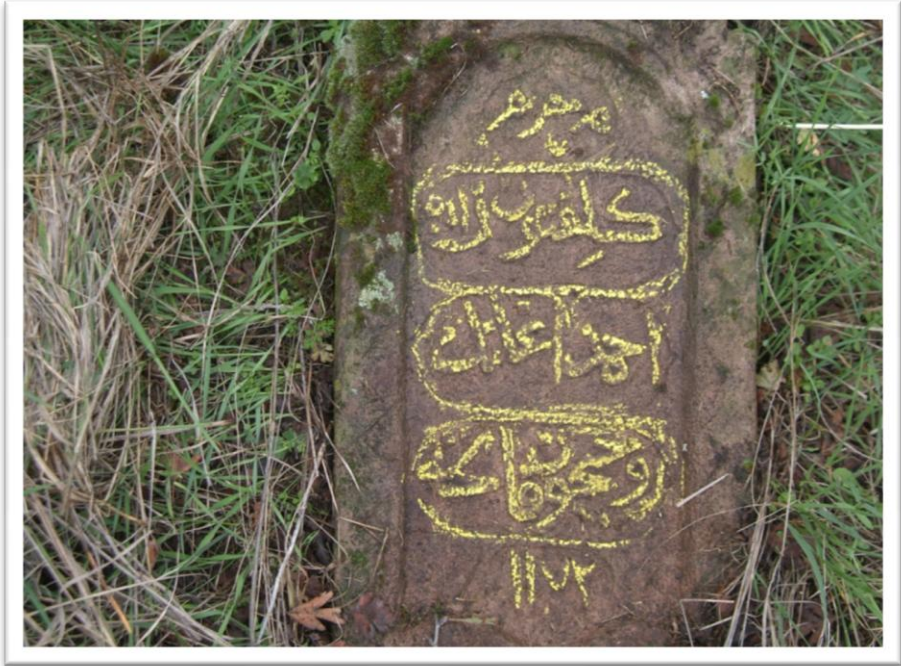 مرحوم
زاده
احمد اغانك
روحيچون فاتحه
١١٧٢